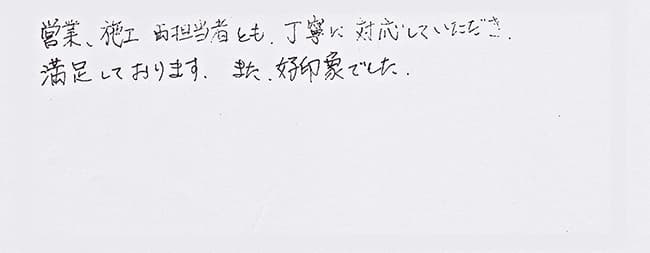 営業、施工 両担当者とも、丁寧に対応していただき、
満足しております。また、好印象でした。